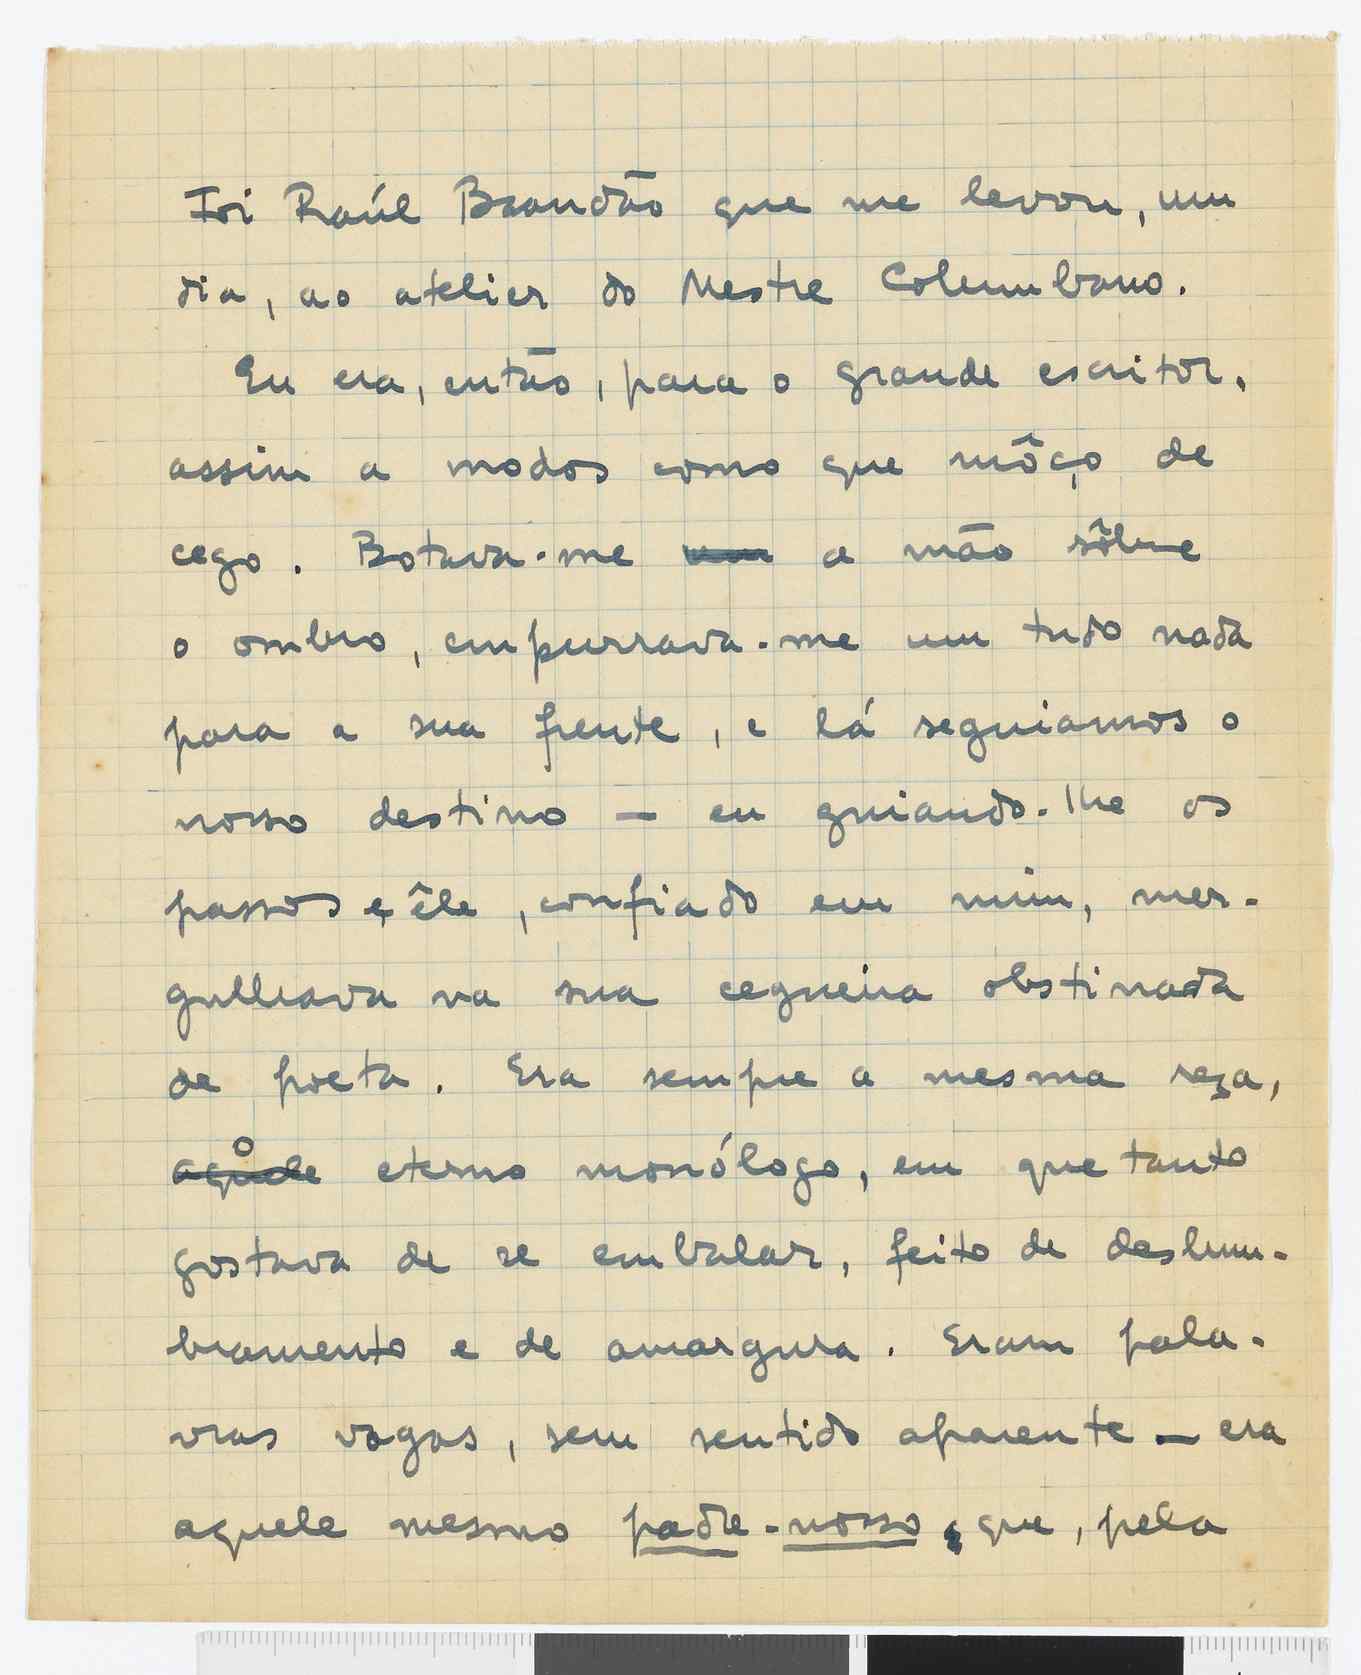 Foi Raúl Brandão que me levou, um
dia, ao atelier do Mestre Columbano.
Eu era, então, para o grande escritor,
assim a modos como que môço de
cego. Botava-me um a mão sôbre
o ombro, empurrava-me um tudo nada
para a sua frente, e lá seguiamos o
nosso destino — eu guiando-lhe os
passos e, êle, confiado em mim, mer-
gulhava na sua cegueira obstinada
de poeta. Era sempre a mesma reza,
o
aquele eterno monólogo, em que tanto
gostava de se embalar, feito de deslum-
bramento e de amargura. Eram pala-
vras vagas, sem sentido aparente — era
aquele mesmo padre-nosso que, pela